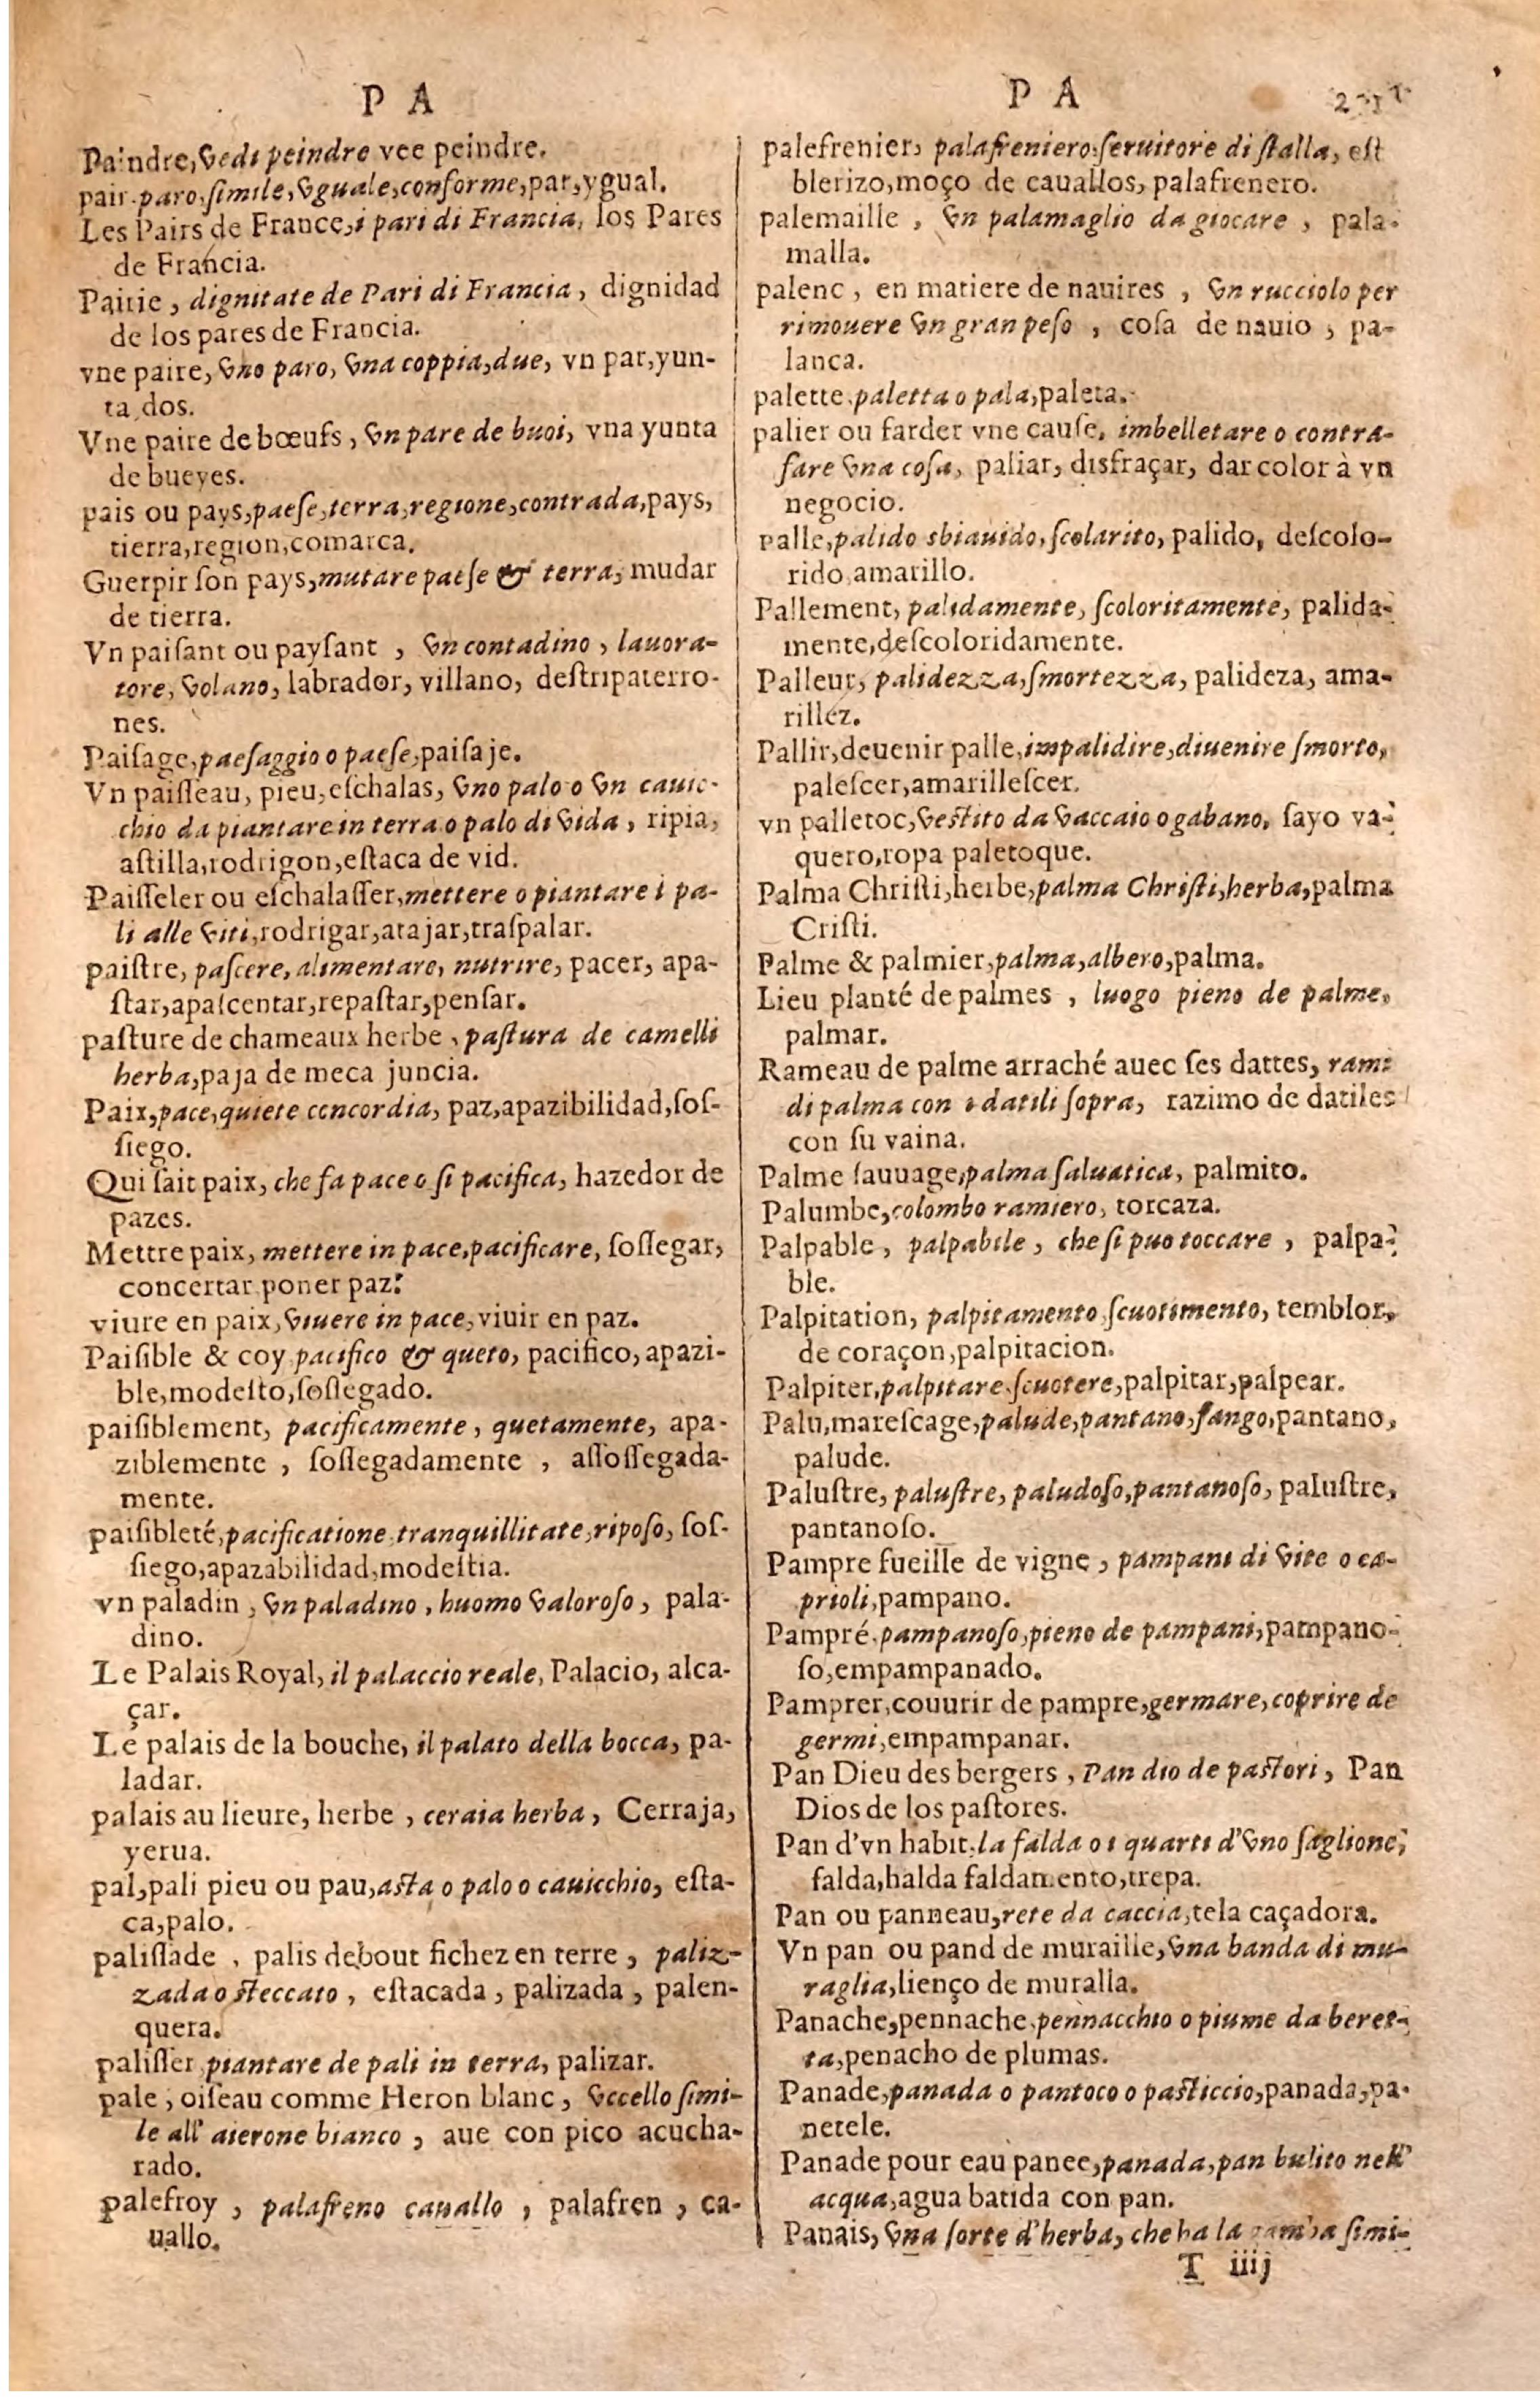 P A
Paindre, vedi peindre vee peindre.
pair. paro, simile, vguale, conforme, par, ygual.
Les Pairs de France, i pari di Francia, los Pares
de Francia.
Pairie, dignitate de Pari di Francia, dignidad
de los pares de Francia.
vne paire, vno paro, vna coppia, due, vn par, yun-
ta, dos.
Vne paire de bœufs, vn pare de buoi, vna yunta
de bueyes.
pais ou pays, paeſe, terra, regione, contrada, pays,
tierra, region, comarca.
Guerpir ſon pays, mutare paeſe & terra, mudar
de tierra.
Vn paiſant ou payſant, vn contadino, lauora-
tore, volano, labrador, villano, deſtripaterro-
nes.
Paiſage, paeſaggio o paeſe, paiſaje.
Vn paiſſeau, pieu, eſchalas, vno palo o vn cauic-
chio da piantare in terra o palo di vida, ripia,
aſtilla, rodrigon, eſtaca de vid.
Paiſſeler ou eſchalaſſer, mettere o piantare i pa-
li alle viti, rodrigar, atajar, traſpalar.
paiſtre, paſcere, alimentare, nutrire, pacer, apa-
ſtar, apaſcentar, repaſtar, penſar.
paſture de chameaux herbe, paſtura de camelli
herba, paja de meca juncia.
Paix, pace, quiete concordia, paz, apazibilidad, ſoſ-
ſiego.
Qui fait paix, che fa pace o ſi pacifica, hazedor de
pazes.
Mettre paix, mettere in pace, pacificare, ſoſſegar,
concertar poner paz.
viure en paix, viuere in pace, viuir en paz.
Paiſible & coy pacifico & queto, pacifico, apazi-
ble, modeſto, ſoſſegado.
paiſiblement, pacificamente, quetamente, apa-
ziblemente, ſoſſegadamente, aſſoſſegada-
mente.
paiſibleté, pacificatione, tranquillitate, ripoſo, ſoſ-
ſiego, apazabilidad, modeſtia.
vn paladin, vn paladino, huomo valoroſo, pala-
dino.
Le Palais Royal, il palaccio reale, Palacio, alca-
çar.
Le palais de la bouche, il palato della bocca, pa-
ladar.
palais au lieure, herbe, ceraia herba, Cerraja,
yerua.
pal, pali pieu ou pau, aſta o palo o cauicchio, eſta-
ca, palo.
paliſſade, palis debout fichez en terre, paliz-
zada o ſteccato, eſtacada, palizada, palen-
quera.
paliſſer piantare de pali in terra, palizar.
pale, oiſeau comme Heron blanc, vccello ſimi-
le all' aierone bianco, aue con pico acucha-
rado.
palefroy, palafreno cauallo, palafren, ca-
uallo.
P A
palefrenier, palafreniero, ſeruitore di ſtalla, eſt
blerizo, moço de cauallos, palafrenero.
palemaille, vn palamaglio da giocare, pala-
malla.
palenc, en matiere de nauires, vn rucciolo per
rimouere vn gran peſo, coſa de nauio, pa-
lanca.
palette, paletta o pala, paleta.
palier ou farder vne cauſe, imbelletare o contra-
fare vna coſa, paliar, disfraçar, dar color à vn
negocio.
palle, palido sbiauido, ſcolarito, palido, deſcolo-
rido, amarillo.
Pallement, palidamente, ſcoloritamente, palida-
mente, deſcoloridamente.
Palleur, palidezza, ſmortezza, palideza, ama-
rillez.
Pallir, deuenir palle, impalidire, diuenire ſmorto,
paleſcer, amarilleſcer.
vn palletoc, veſtito da vaccaio o gabano, ſayo va-
quero, ropa paletoque.
Palma Chriſti, herbe, palma Chriſti, herba, palma
Criſti.
Palme & palmier, palma, albero, palma.
Lieu planté de palmes, luogo pieno de palme,
palmar.
Rameau de palme arraché auec ſes dattes, rami
di palma con i datili ſopra, razimo de datiles
con ſu vaina.
Palme ſauuage, palma ſaluatica, palmito.
Palumbe, colombo ramiero, torcaza.
Palpable, palpabile, che ſi puo toccare, palpa-
ble.
Palpitation, palpitamento, ſcuotimento, temblor,
de coraçon, palpitacion.
Palpiter, palpitare, ſcuotere, palpitar, palpear.
Palu, mareſcage, palude, pantano, fango, pantano,
palude.
Paluſtre, paluſtre, paludoſo, pantanoſo, paluſtre,
pantanoſo.
Pampre fueille de vigne, pampani di vite o ca-
prioli, pampano.
Pampré, pampanoſo, pieno de pampani, pampano-
ſo, empampanado.
Pamprer, couurir de pampre, germare, coprire de
germi, empampanar.
Pan Dieu des bergers, Pan dio de paſtori, Pan
Dios de los paſtores.
Pan d'vn habit, la falda o i quarti d'vno ſaglione,
falda, halda faldamento, trepa.
Pan ou panneau, rete da caccia, tela caçadora.
Vn pan ou pand de muraille, vna banda di mu-
raglia, lienço de muralla.
Panache, pennache, pennacchio o piume da beret-
ta, penacho de plumas.
Panade, panada o pantoco o paſticcio, panada, pa-
netele.
Panade pour eau panee, panada, pan bulito nell'
acqua, agua batida con pan.
Panais, vna ſorte d'herba, che ha la gamba ſimi-
T iiij